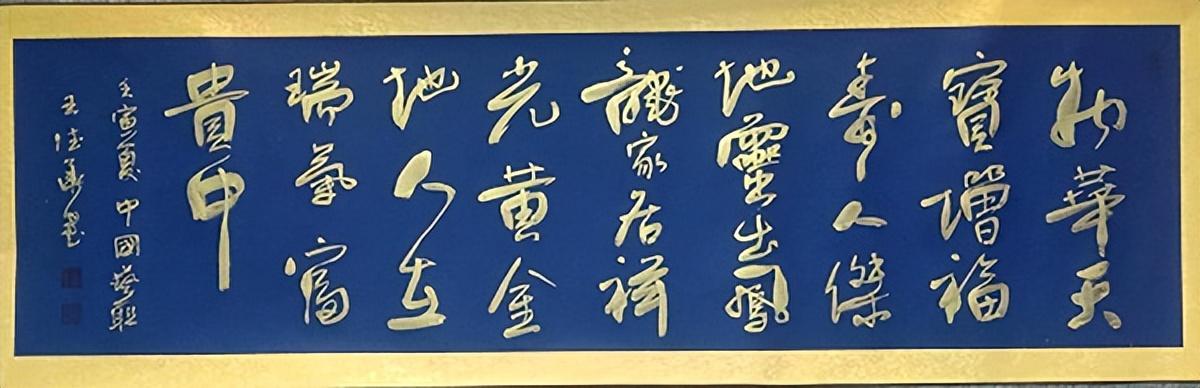 物華天
寶增福
壽人傑
地靈出鳳
龍家居祥
光黄金
地人在
瑞氣富
貴中
壬寅夏中國
王德書